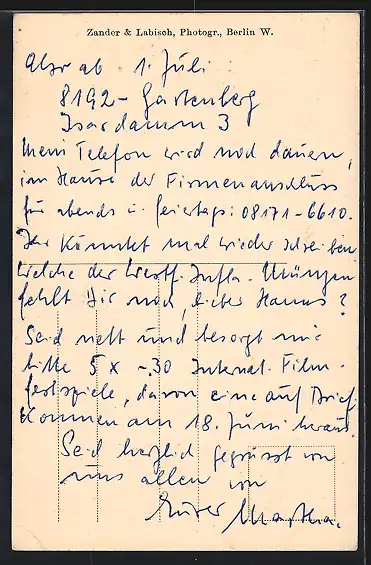 Zander & Labisch, Photogr., Berlin W.
Also ab 1. Juli:
8192 - Gartenberg
Isardamm 3
Mein Telefon wird noch dauern,
im Hause der Firmenanschluss
für abends u. feiertags: 08171-6610.
Ihr könntet mal wieder schreiben
welche der Westf. Infla. Münzen
fehlt Dir noch, lieber Hanns?
Seid nett und besorgt mir
bitte 5 x -.30 Internat. Film-
festspiele, davon eine auf Brief.
Kommen am 18. Juni heraus.
Seid herzlich gegrüsst von
uns allen von
Eurer Martha.